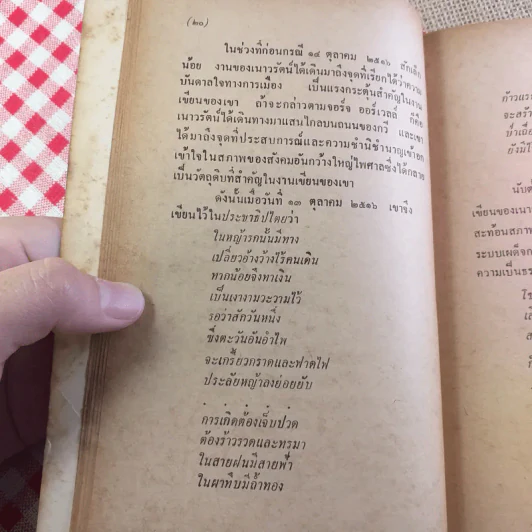 (๒๐)
ในช่วงที่ก่อนกรณี ๑๔ ตุลาคม ๒๕๑๖ สักเล็ก
น้อย งานของเนาวรัตน์ได้เดินมาถึงจุดที่เรียกได้ว่าความ
บันดาลใจทางการเมือง เป็นแรงกระตุ้นสำคัญในงาน
เขียนของเขา ถ้าจะกล่าวตามจอร์จ ออร์เวลล์ ก็คือ
เนาวรัตน์ได้เดินทางมาแสนไกลบนถนนของกวี และเขา
ได้มาถึงจุดที่ประสบการณ์และความชำนิชำนาญเข้าอก
เข้าใจในสภาพของสังคมอันกว้างใหญ่ไพศาลซึ่งได้กลาย
เป็นวัตถุดิบที่สำคัญในงานเขียนของเขา
ดังนั้นเมื่อวันที่ ๑๓ ตุลาคม ๒๕๑๖ เขาจึง
เขียนไว้ในประชาธิปไตยว่า
ในหญ้ารกนั้นมีทาง
เปลี่ยวอ้างว้างไร้คนเดิน
ทากน้อยจึงทาเงิน
เป็นเงางามวะวามไว้
รอว่าสักวันหนึ่ง
ซึ่งตะวันอันอำไพ
จะเกรี้ยวกราดและฟาดไฟ
ประลัยหญ้าลงย่อยยับ
การเกิดต้องเจ็บปวด
ต้องร้าวรวดและทรมา
ในสายฝนมีสายฟ้า
ในผาทึบมีถ้ำทอง
ก้าวแร
จะสร้า
ยังมีใ
เขียนของเนา
สะท้อนสภา
ระบบเผด็จก
ความเป็นธร